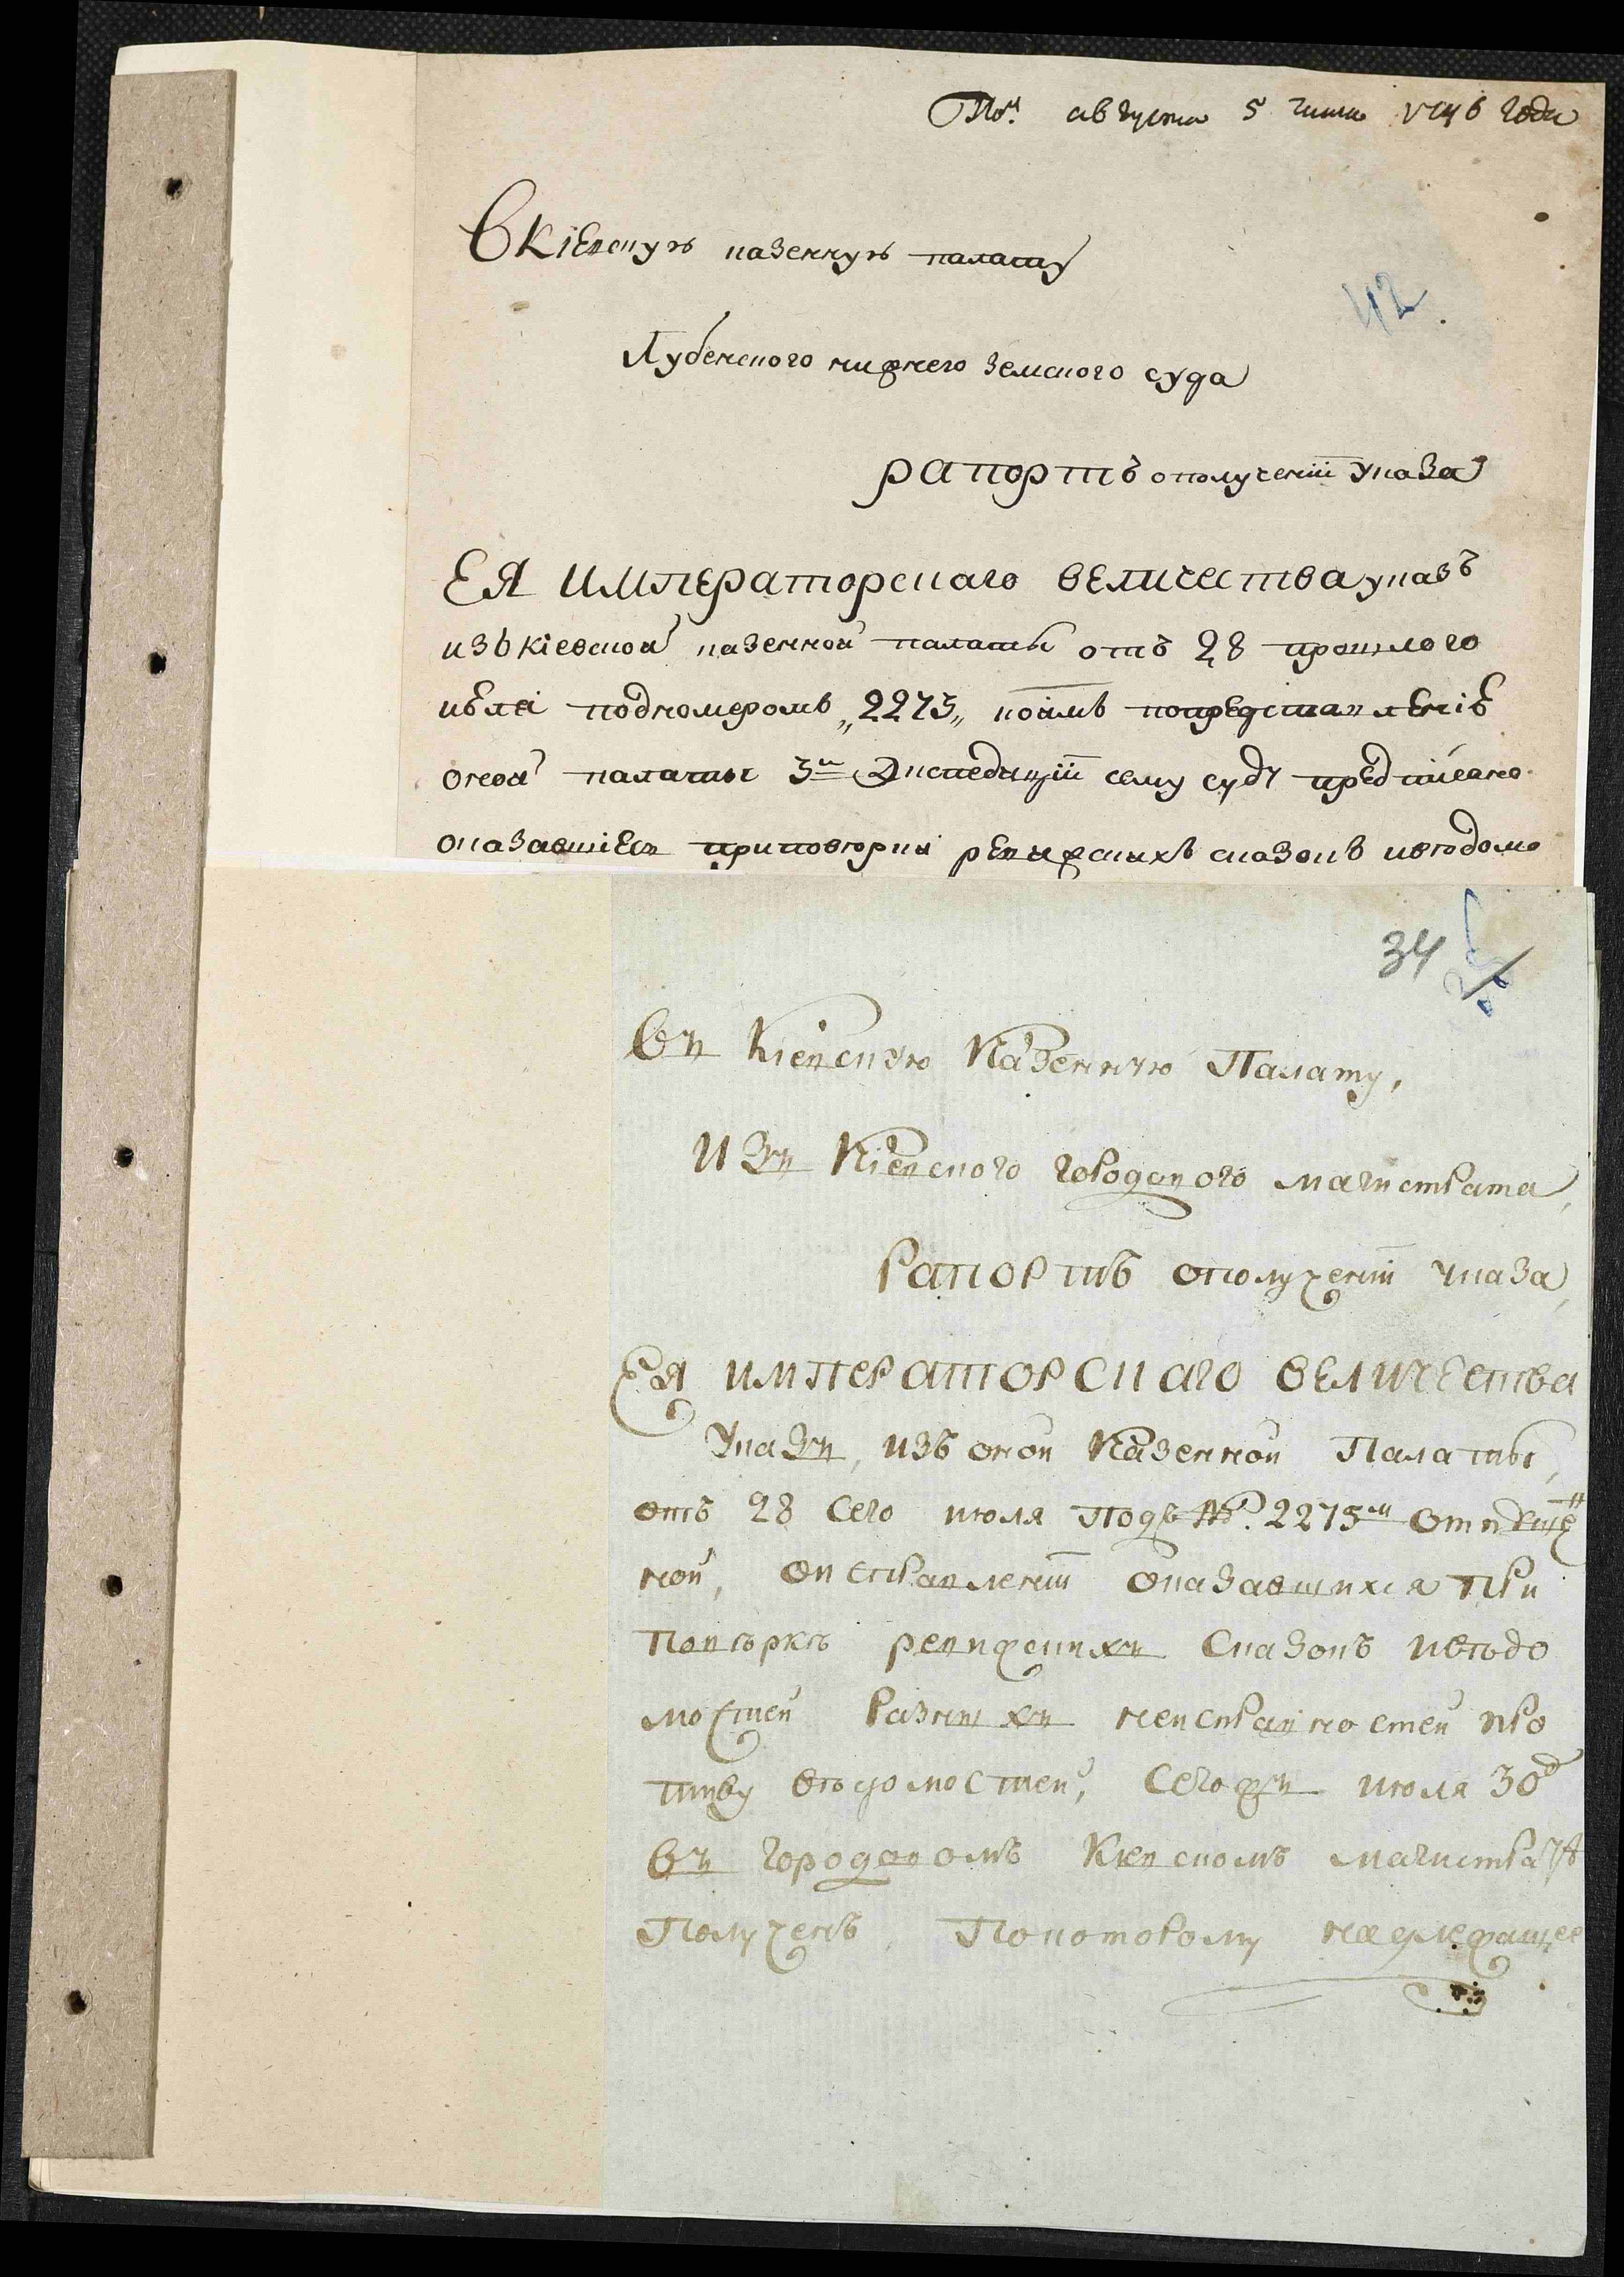 Пол. августа 5 числа 1796 года
В киевскую казенную палату
42
Лубенского нижнего земского суда
рапортъ ополученіи указа
ЕЯ императорскаго величества указъ
изъ кіевской казенной палаты отъ 28 прошлого
июля подномеромъ „2275„ коимъ попредставленіе
оной палаты 3й Экспедиціи сему суду предписано
оказавшіеся приповторки ревижскихъ сказокъ иведомо
34
Въ Кіевскую Казенную Палату,
Изъ Кіевского городового магистрата,
Рапортъ ополученіи указа,
Ея императорскаго величества
Указъ, изъ оной Казенной Палаты,
отъ 28 Сего июля подъ №. 2275м Отпуще
ной, оисправленіи оказавшихся при
Повѣркѣ ревижскихъ Сказокъ ивѣдо
мостей разныхъ неисправностей про
тиву вѣдомостей, Сегожъ июля 30д
Въ городовомъ Киевскомъ магистратѣ
Полученъ, Покоторому надлежащее